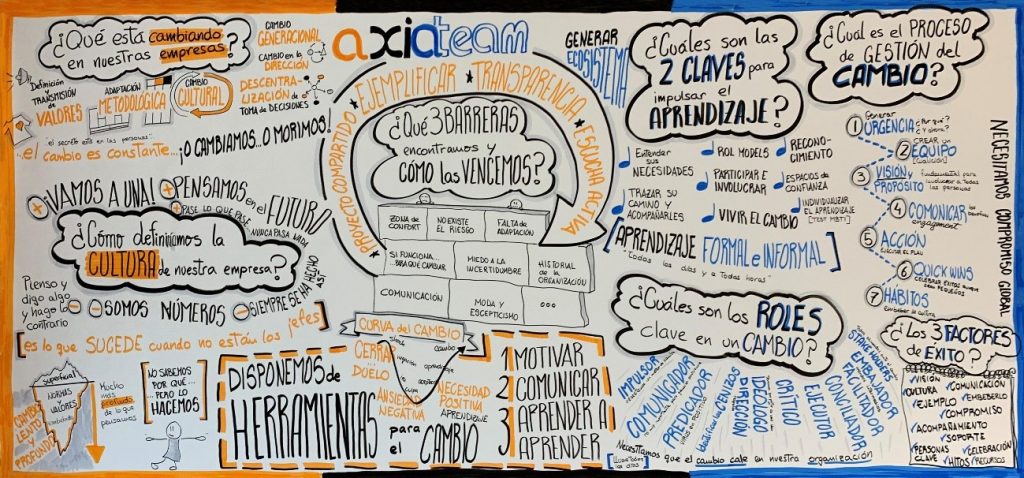 ¿Qué está cambiando
en nuestras empresas?
CAMBIO
GENERACIONAL
CAMBIO en la
DIRECCIÓN
DESCENTRA-
LIZACIÓN de
TOMA de DECISIONES
Definición
y
TRANSMISIÓN
de
VALORES
ADAPTACIÓN
METODOLÓGICA
CAMBIO
CULTURAL
"el secreto está en las personas"
...el cambio es constante...
¡O CAMBIAMOS...O MORIMOS!
¡VAMOS A UNA!
PENSAMOS
en el FUTURO
PASE LO QUE PASE
NUNCA PASA NADA
¿Cómo definimos la
CULTURA de nuestra empresa?
Pienso y
digo algo
y hago lo
contrario
SOMOS NÚMEROS
SIEMPRE SE HA HECHO
ASÍ
[es lo que SUCEDE cuando no están los jefes]
superficial
NORMAS
VALORES
CAMBIO
LENTO
Y
PROFUNDO
Mucho
más
profundo
de lo que
pensamos
NO SABEMOS
POR QUÉ...
...PERO LO
HACEMOS
axiateam
PROYECTO COMPARTIDO
EJEMPLIFICAR
TRANSPARENCIA
ESCUCHA ACTIVA
¿Qué 3 BARRERAS
encontramos y
CÓMO las VENCEMOS?
ZONA de
CONFORT
NO EXISTE
EL RIESGO
FALTA de
ADAPTACIÓN
SI FUNCIONA...
PARA QUÉ CAMBIAR
MIEDO A LA
INCERTIDUMBRE
HISTORIAL
de la
ORGANIZACIÓN
COMUNICACIÓN
MODA y
ESCEPTICISMO
...
CURVA del CAMBIO
DISPONEMOS de
HERRAMIENTAS
para el
CAMBIO
CERRAR
DUELO
ANSIEDAD
NEGATIVA
NECESIDAD
POSITIVA
APRENDIZAJE
1 MOTIVAR
2 COMUNICAR
3 APRENDER A
APRENDER
GENERAR
ECOSISTEMA
¿Cuáles son las
2 CLAVES para
impulsar el
APRENDIZAJE?
Entender
sus
NECESIDADES
ROL MODELS
RECONO-
CIMIENTO
TRAZAR SU
CAMINO Y
ACOMPAÑARLES
PARTICIPAR E
INVOLUCRAR
ESPACIOS de
CONFIANZA
VIVIR EL CAMBIO
INDIVIDUALIZAR
EL APRENDIZAJE
[TEST MBTI]
[APRENDIZAJE FORMAL e INFORMAL]
"Todos los días y a Todas horas"
¿Cuáles son los ROLES
clave en un CAMBIO?
IMPULSOR
COMUNICADOR
PREDICADOR
Identificar a los CENIZOS
DIRECCIÓN
IDEÓLOGO
CRÍTICO
EJECUTOR
CONCILIADOR
FACILITADOR
EMBAJADOR
STAKEHOLDERS
Necesitamos que el cambio cale en nuestra organización
¿Cuál es el PROCESO
de GESTIÓN del
CAMBIO?
Generar
1 URGENCIA
¿Por qué?
¿Y ahora?
CREAR un
2 EQUIPO
[COALICIÓN]
3 VISIÓN y
PROPÓSITO
fundamental para
involucrar a Todas
las personas
4 COMUNICAR
los beneficios
engagement
5 ACCIÓN
EJECUTAR EL PLAN
6 QUICK WINS
CELEBRAR ÉXITOS aunque
sean pequeños
7 HÁBITOS
Embeber la cultura
NECESITAMOS COMPROMISO GLOBAL
¿Los 3 FACTORES
de ÉXITO?
VISIÓN
CULTURA
EJEMPLO
COMUNICACIÓN
EMBEBERLO
COMPROMISO
ACOMPAÑAMIENTO
Y SOPORTE
PERSONAS
CLAVE
CELEBRACIÓN
HITOS
RECURSOS